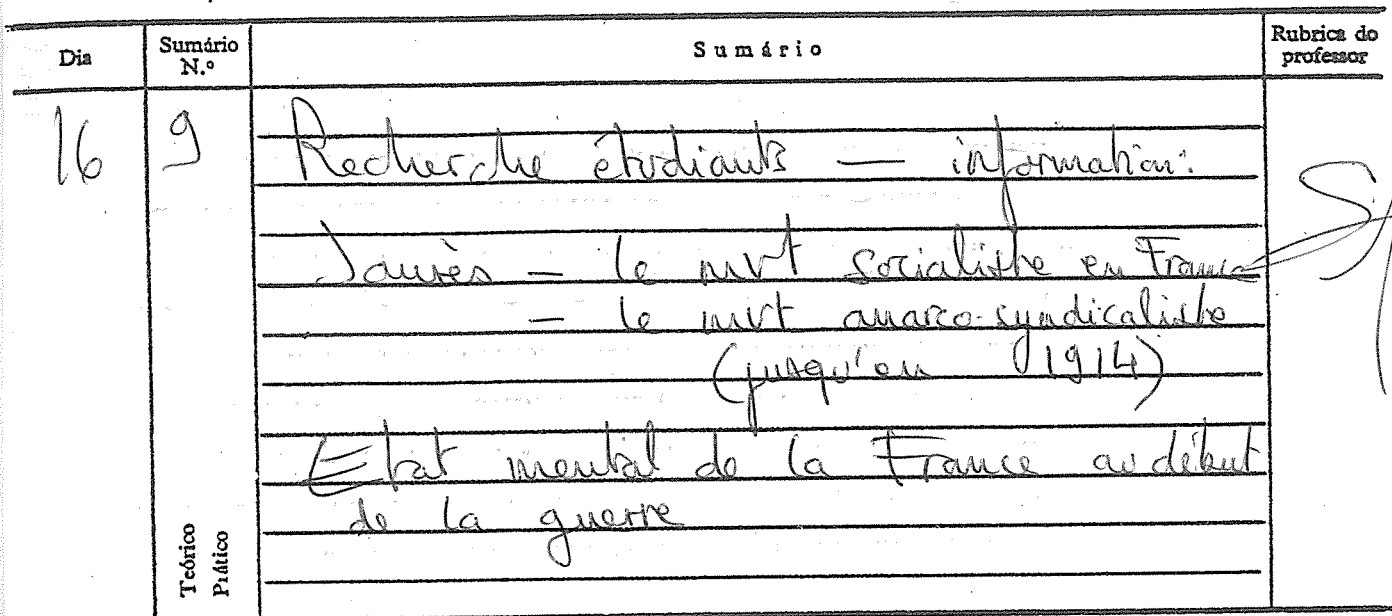 Dia
Sumário N.º
Sumário
Rubrica do professor
16
9
Recherche étudiants — information:
Jaurès – le mvt socialiste en France
– le mvt anarco-syndicaliste
(jusqu'en 1914)
Etat mental de la France au début
de la guerre
Teórico
Prático